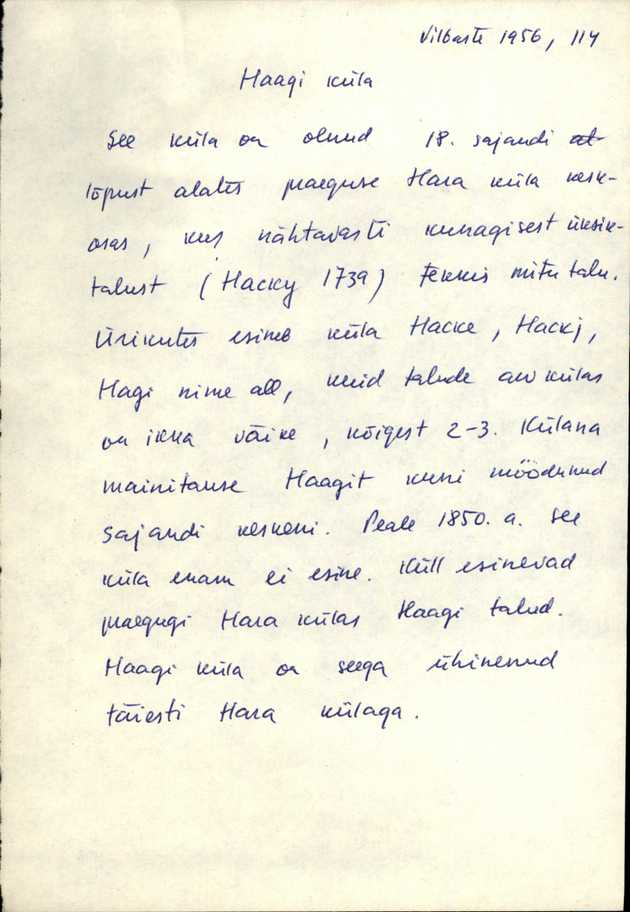 Vilbaste 1956, 114
Haagi küla
See küla on olnud 18. sajandi
lõpust alates praeguse Hara küla kesk-
osas, kus nähtavasti kunagisest üksik-
talust (Hacky 1739) tekkis mitu talu.
Ürikutes esineb küla Hacke, Hackj,
Hagi nime all, kuid talude arv külas
on ikka väike, kõigest 2-3. Külana
mainitakse Haagit kuni möödunud
sajandi keskeni. Peale 1850. a. see
küla enam ei esine. Küll esinevad
praegugi Hara külas Haagi talud.
Haagi küla on seega ühinenud
täiesti Hara külaga.